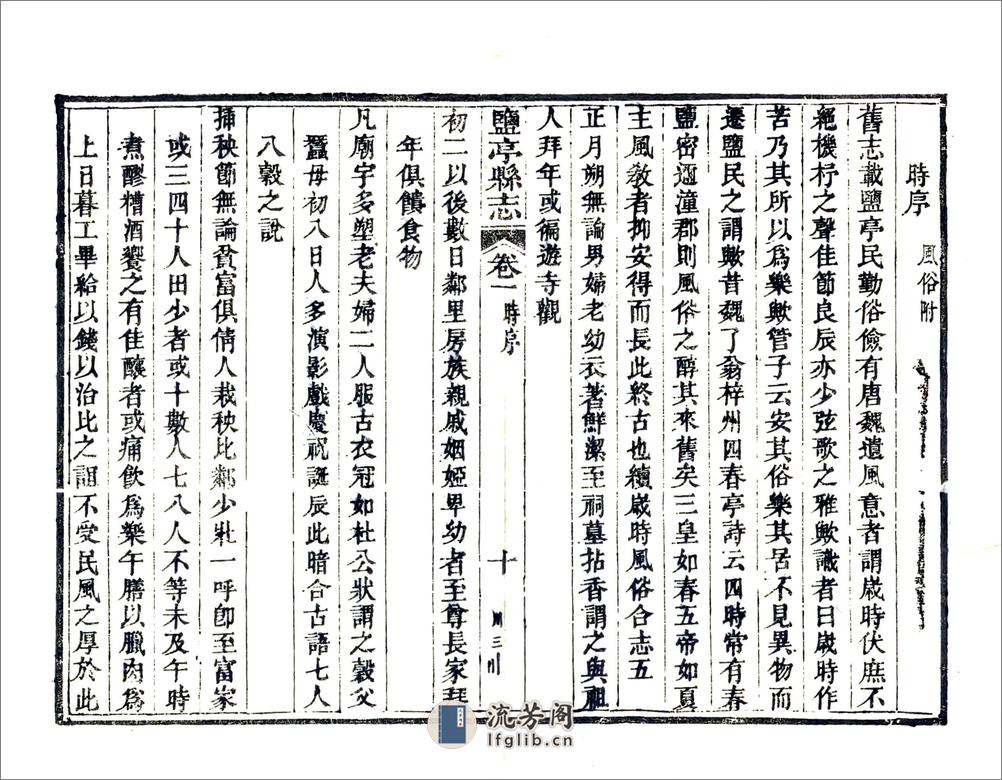 時序 風俗附
舊志載鹽亭民勤俗儉有唐魏遺風意者謂歲時伏廡不
絕機杼之聲佳節良辰亦少弦歌之雅歟識者曰歲時作
苦乃其所以爲樂歟管子云安其俗樂其居不見異物而
遷鹽民之謂歟昔魏了翁梓州四春亭詩云四時常有春
鹽密邇潼郡則風俗之醇其來舊矣三皇如春五帝如夏
主風教者抑安得而長此終古也續歲時風俗合志五
正月朔無論男婦老幼衣著鮮潔至祠墓拈香謂之與祖
人拜年或徧遊寺觀
鹽亭縣志 卷一 時序 十
初二以後數日鄰里房族親戚姻婭卑幼者至尊長家拜
年俱饋食物
凡廟宇多塑老夫婦二人服古衣冠如杜公狀謂之穀父
蠶母初八日人多演影戲慶祝誕辰此暗合古語七人
八穀之說
揷秧節無論貧富俱倩人栽秧比鄰少壯一呼卽至富家
或三四十人田少者或十數人七八人不等未及午時
煮醪糟酒饗之有佳釀者或痛飲爲樂午膳以臘肉爲
上日暮工畢給以錢以治比之誼不受民風之厚於此
流芳阁
lfglib.cn